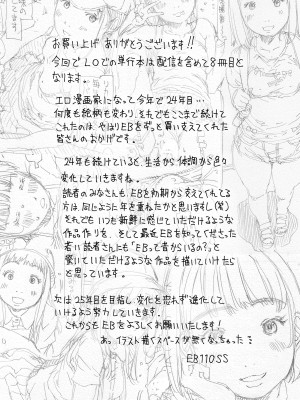 お買い上げ ありがとうございます!!
今回でLOでの単行本は配信を含めて8冊目と
なります。
エロ漫画家になって今年で24年目…
何度も絵柄も変わり、それでもここまで続けて
これたのは、やはりEBをずっと買い支えてくれる
皆さんのおかげです。
24年も続けていると、生活から体調から色々
変化していきますね。
読者のみなさんも、EBを初期から支えてくれてる
方は、同じように年を重ねたかと思いますし(笑)
それでもいつも新鮮に感じていただけるような
作品作りを、そして最近EBを知ってくださった
若い読者さんにも「EBって昔からいるの?」と
驚いていただけるような作品を描いていけたら
と思っています。
次は25年目を目指し、変化を恐れず進化して
いけるよう努力していきます。
これからもEBをよろしくお願いいたします!
あっ イラスト描くスペースが無くなっちゃった…
EB110SS